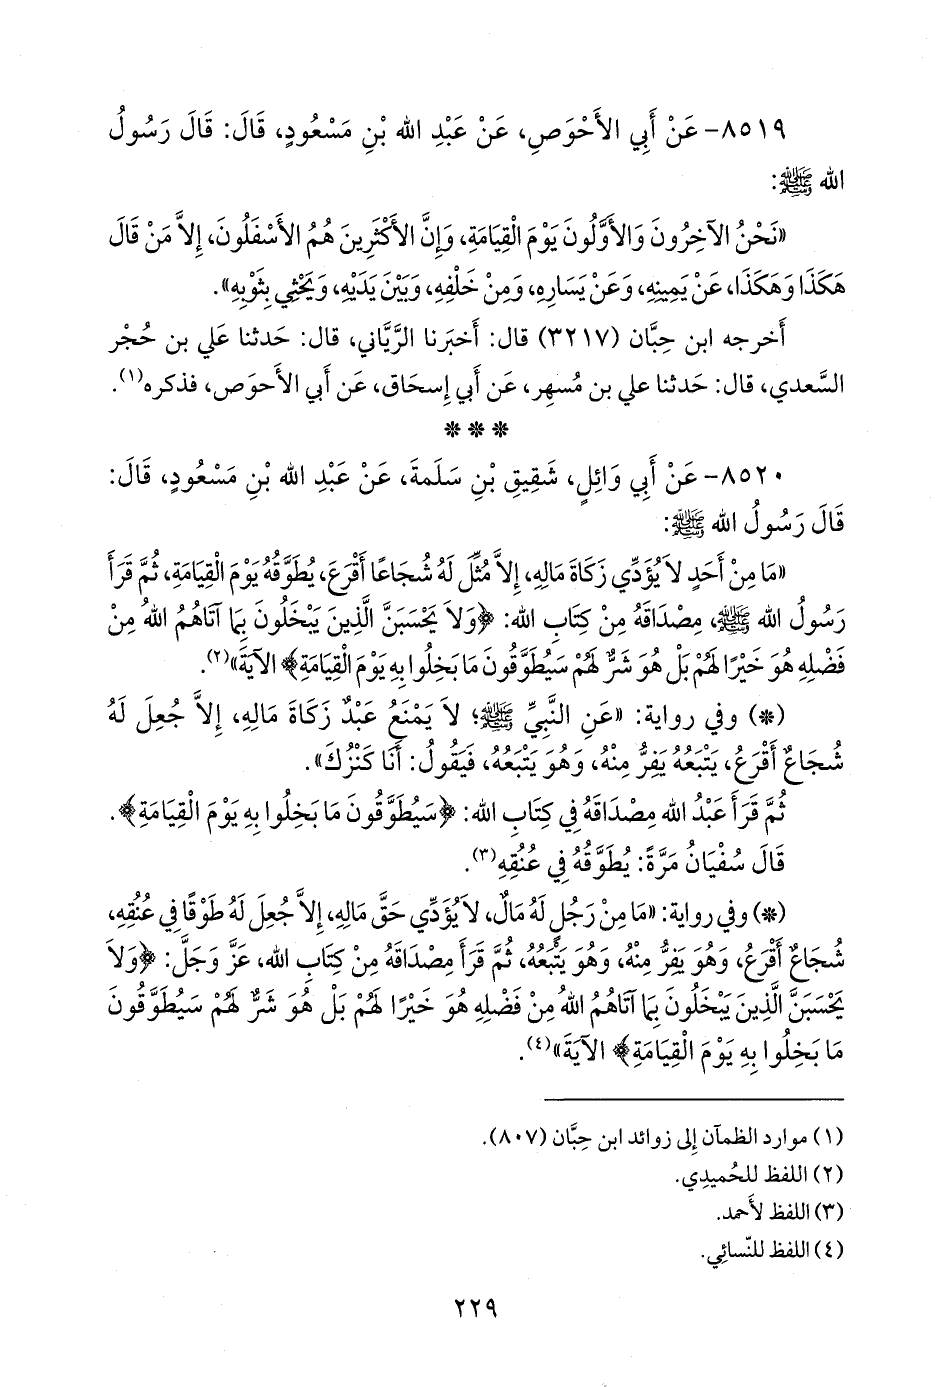 ٨٥١٩- عَنْ أَبِي الأَحْوَصِ، عَنْ عَبْدِ الله بْنِ مَسْعُودٍ، قَالَ: قَالَ رَسُولُ
الله ﷺ:
«نَحْنُ الآخِرُونَ وَالأَوَّلُونَ يَوْمَ الْقِيَامَةِ، وَإِنَّ الأَكْثَرِينَ هُمُ الأَسْفَلُونَ، إِلاَّ مَنْ قَالَ
هَكَذَا وَهَكَذَا، عَنْ يَمِينِهِ، وَعَنْ يَسَارِهِ، وَمِنْ خَلْفِهِ، وَبَيْنَ يَدَيْهِ، وَيَحْثِي بِثَوْبِهِ».
أَخرجه ابن حِبَّان (٣٢١٧) قال: أَخبَرنا الرَّيَّاني، قال: حَدثنا علي بن حُجْر
السَّعدي، قال: حَدثنا علي بن مُسهِر، عَن أَبي إِسحَاق، عَن أَبي الأَحوَص، فذكره(١).
* * *
٨٥٢٠- عَنْ أَبِي وَائِلٍ، شَقِيقِ بْنِ سَلَمةَ، عَنْ عَبْدِ الله بْنِ مَسْعُودٍ، قَالَ:
قَالَ رَسُولُ الله ﷺ:
«مَا مِنْ أَحَدٍ لاَ يُؤَدِّي زَكَاةَ مَالِهِ، إِلاَّ مُثِّلَ لَهُ شُجَاعًا أَقْرَعَ، يُطَوَّقُهُ يَوْمَ الْقِيَامَةِ، ثُمَّ قَرَأَ
رَسُولُ الله ﷺ، مِصْدَاقَهُ مِنْ كِتَابِ الله: ﴿وَلاَ يَحْسَبَنَّ الَّذِينَ يَبْخَلُونَ بِمَا آتَاهُمُ اللهُ مِنْ
فَضْلِهِ هُوَ خَيْرًا لَهُمْ بَلْ هُوَ شَرٌّ لَهُمْ سَيُطَوَّقُونَ مَا بَخِلُوا بِهِ يَوْمَ الْقِيَامَةِ﴾ الآيَةَ»(٢).
(*) وفي رواية: «عَنِ النَّبِيِّ ﷺ؛ لاَ يَمْنَعُ عَبْدٌ زَكَاةَ مَالِهِ، إِلاَّ جُعِلَ لَهُ
شُجَاعٌ أَقْرَعُ، يَتْبَعُهُ يَفِرُّ مِنْهُ، وَهُوَ يَتْبَعُهُ، فَيَقُولُ: أَنَا كَنْزُكَ».
ثُمَّ قَرَأَ عَبْدُ الله مِصْدَاقَهُ فِي كِتَابِ الله: ﴿سَيُطَوَّقُونَ مَا بَخِلُوا بِهِ يَوْمَ الْقِيَامَةِ﴾.
قَالَ سُفْيَانُ مَرَّةً: يُطَوَّقُهُ فِي عُنُقِهِ(٣).
(*) وفي رواية: «مَا مِنْ رَجُلٍ لَهُ مَالٌ، لاَ يُؤَدِّي حَقَّ مَالِهِ، إِلاَّ جُعِلَ لَهُ طَوْقًا فِي عُنُقِهِ،
شُجَاعٌ أَقْرَعُ، وَهُوَ يَفِرُّ مِنْهُ، وَهُوَ يَتْبَعُهُ، ثُمَّ قَرَأَ مِصْدَاقَهُ مِنْ كِتَابِ الله، عَزَّ وَجَلَّ: ﴿وَلاَ
يَحْسَبَنَّ الَّذِينَ يَبْخَلُونَ بِمَا آتَاهُمُ اللهُ مِنْ فَضْلِهِ هُوَ خَيْرًا لَهُمْ بَلْ هُوَ شَرٌّ لَهُمْ سَيُطَوَّقُونَ
مَا بَخِلُوا بِهِ يَوْمَ الْقِيَامَةِ﴾ الآيَةَ»(٤).
(١) موارد الظمآن إِلى زوائد ابن حِبَّان (٨٠٧).
(٢) اللفظ للحُميدِي.
(٣) اللفظ لأَحمد.
(٤) اللفظ للنَّسائِي.
٢٢٩